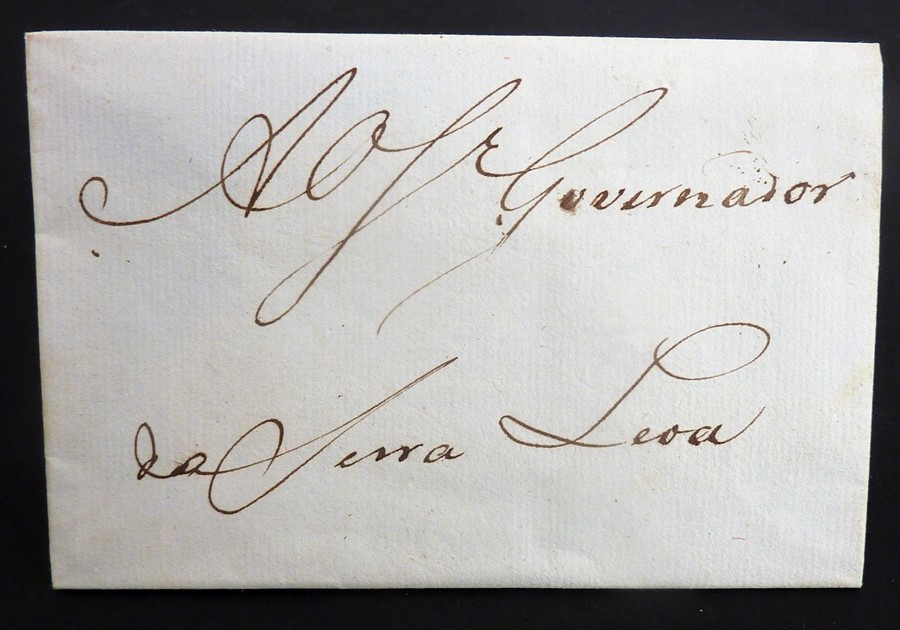 Ao Sr Governador
da Serra Leoa